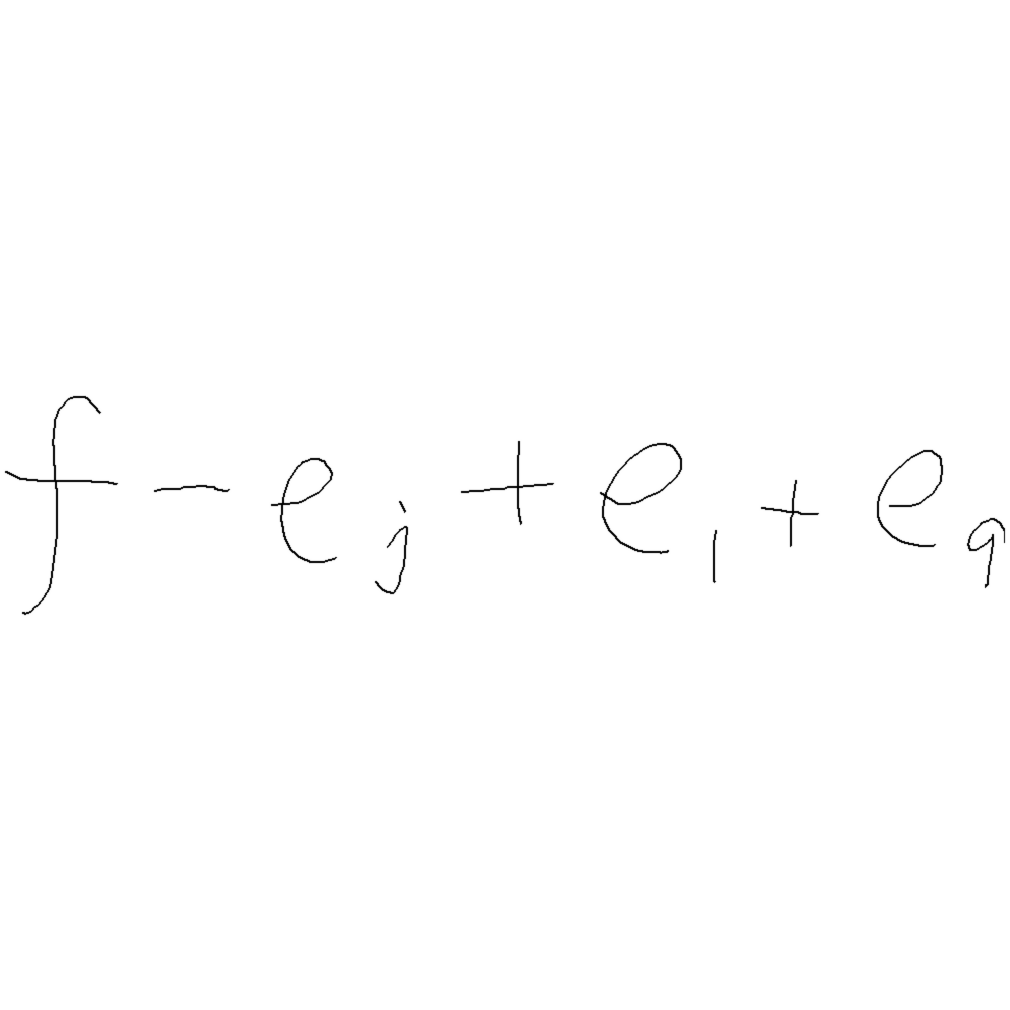 f - e_j + e_1 + e_9